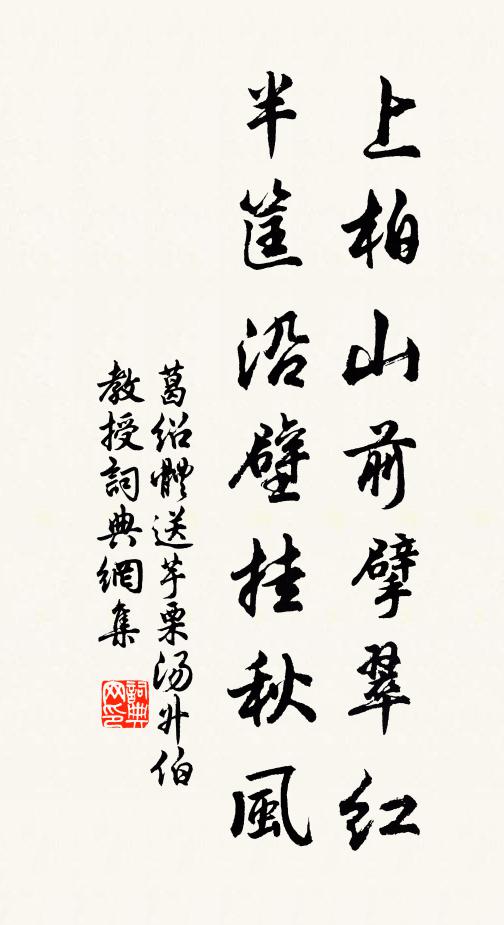 上柏山前擘翠红
半筐沿壁挂秋風
葛绍體送芋栗汤升伯
教授詞典網集
詞典网印